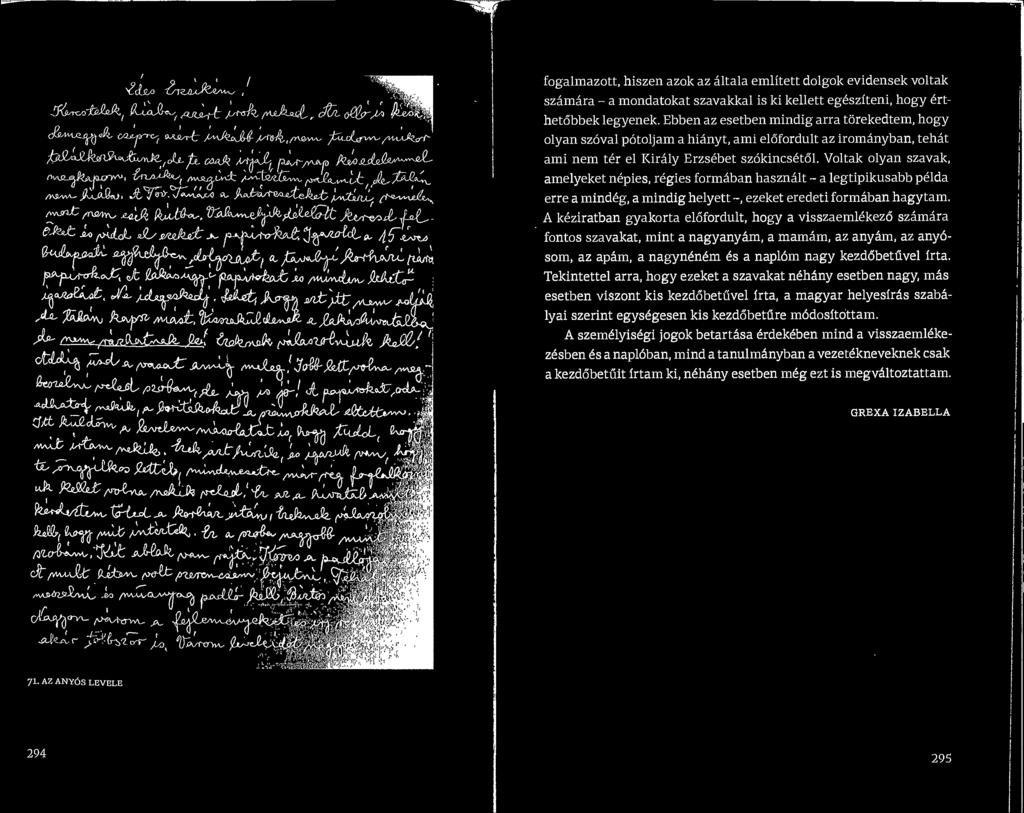 Édes Erzsikém!
hiába, azért írok neked,
azért inkább írok, nem tudom mikor
találkozhatunk, de te csak írjál, pár nap késedelemmel
megkapom. Erzsike, megint intéztem valamit, de talán
nem hiába. A Főv. Tanács a határozatokat intézi, remélem
most nem esik kútba. Valamelyik délelőtt keresd fel
őket és vidd el ezeket a papírokat. Igazold a 15 éves
budapesti egyhelyben dolgozást, a tavalyi kórházi
papírokat. A lakásügyi papírokat és minden lehető
igazolást. Ne idegeskedj. Lehet, hogy ezt itt nem adják
de talán kapsz mást. Visszaküldenék a lakáshivatalba
de nem várhatnak le! Ezeknek válaszolniuk kell!
Addig üsd a vasat amíg meleg! Jobb lett volna meg-
beszélni veled szóban, de így is jó! A papírokat oda
adhatod nekik, a borítékokat a számokkal eltettem.
Itt küldöm a levelem másolatát is, hogy tudd,
mit írtam nekik. Ezek azt hiszik, és igazuk van,
te öngyilkos lettél, mindenesetre már rég
kellet volna nekik veled. Ez az a hivatal
kérdeztem tőled a kórház után, Ezeknek
kell, hogy mit intéztek. Ez a szoba nagyobb mint
szobám. Két ablak van rajta. Köves a
A mult héten volt szerencsém bejutni.
meszelni és műanyag padló kell. Biztos
Nagyon várom a fejleményeket
akár többször is. Várom leveleidet
71. AZ ANYÓS LEVELE
294
fogalmazott, hiszen azok az általa említett dolgok evidensek voltak
számára – a mondatokat szavakkal is ki kellett egészíteni, hogy ért-
hetőbbek legyenek. Ebben az esetben mindig arra törekedtem, hogy
olyan szóval pótoljam a hiányt, ami előfordult az irományban, tehát
ami nem tér el Király Erzsébet szókincsétől. Voltak olyan szavak,
amelyeket népies, régies formában használt – a legtipikusabb példa
erre a mindég, a mindig helyett –, ezeket eredeti formában hagytam.
A kéziratban gyakorta előfordult, hogy a visszaemlékező számára
fontos szavakat, mint a nagyanyám, a mamám, az anyám, az anyó-
som, az apám, a nagynéném és a naplóm nagy kezdőbetűvel írta.
Tekintettel arra, hogy ezeket a szavakat néhány esetben nagy, más
esetben viszont kis kezdőbetűvel írta, a magyar helyesírás szabá-
lyai szerint egységesen kis kezdőbetűre módosítottam.
A személyiségi jogok betartása érdekében mind a visszaemléke-
zésben és a naplóban, mind a tanulmányban a vezetékneveknek csak
a kezdőbetűit írtam ki, néhány esetben még ezt is megváltoztattam.
GREXA IZABELLA
295